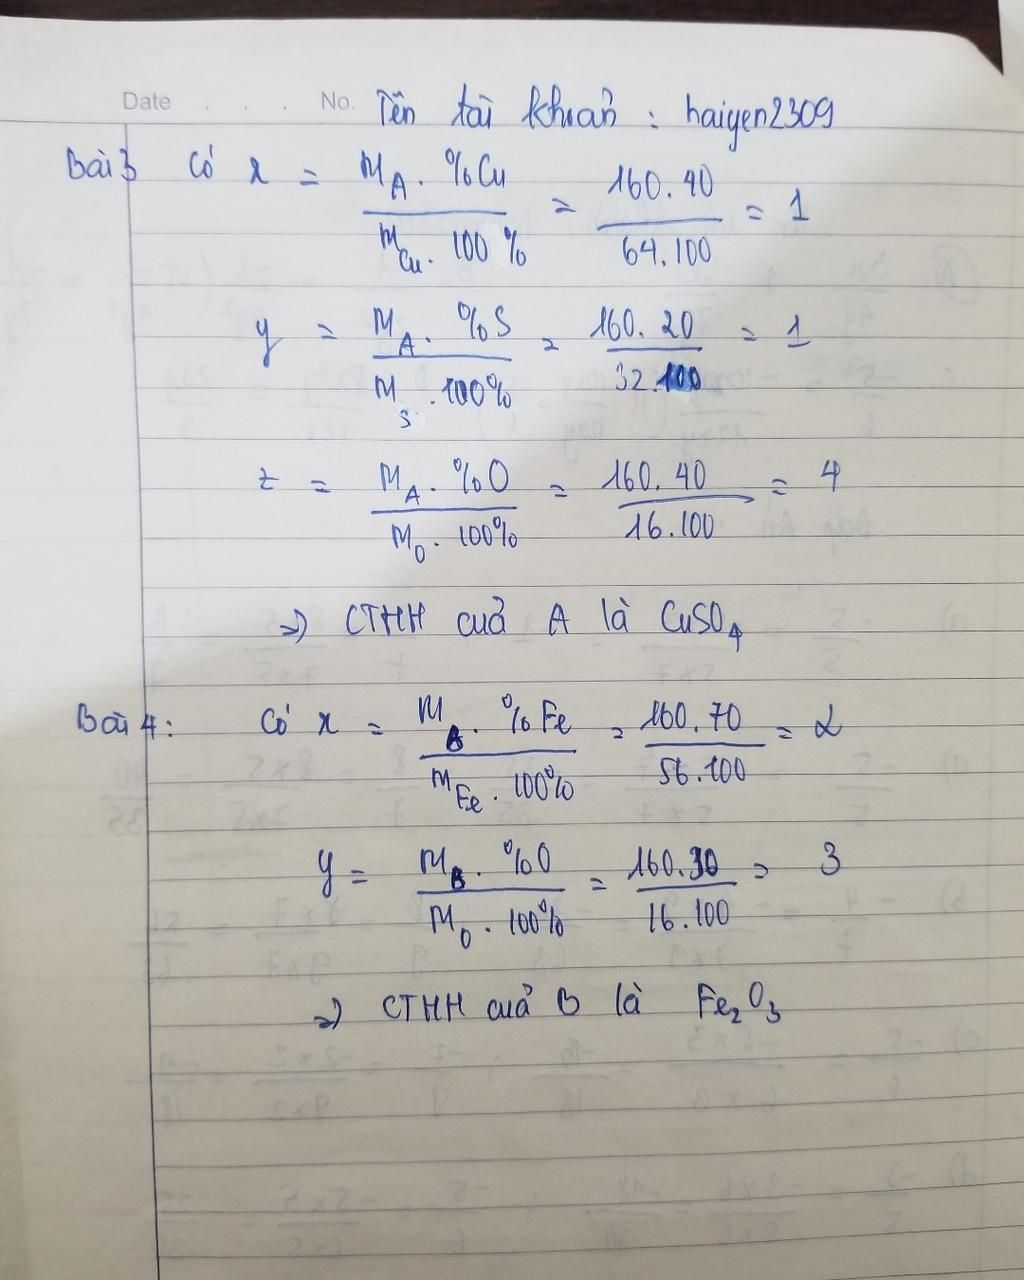 Date . . . No. Tên tài khoản : haiyen2309
Bài 3 Có x = M_A . %Cu / M_Cu . 100% = 160.40 / 64.100 = 1
y = M_A . %S / M_S . 100% = 160.20 / 32.100 = 1
z = M_A . %O / M_O . 100% = 160.40 / 16.100 = 4
=> CTHH cuả A là CuSO₄
Bài 4 : Có x = M_B . %Fe / M_Fe . 100% = 160.70 / 56.100 = 2
y = M_B . %O / M_O . 100% = 160.30 / 16.100 = 3
=> CTHH cuả B là Fe₂O₃